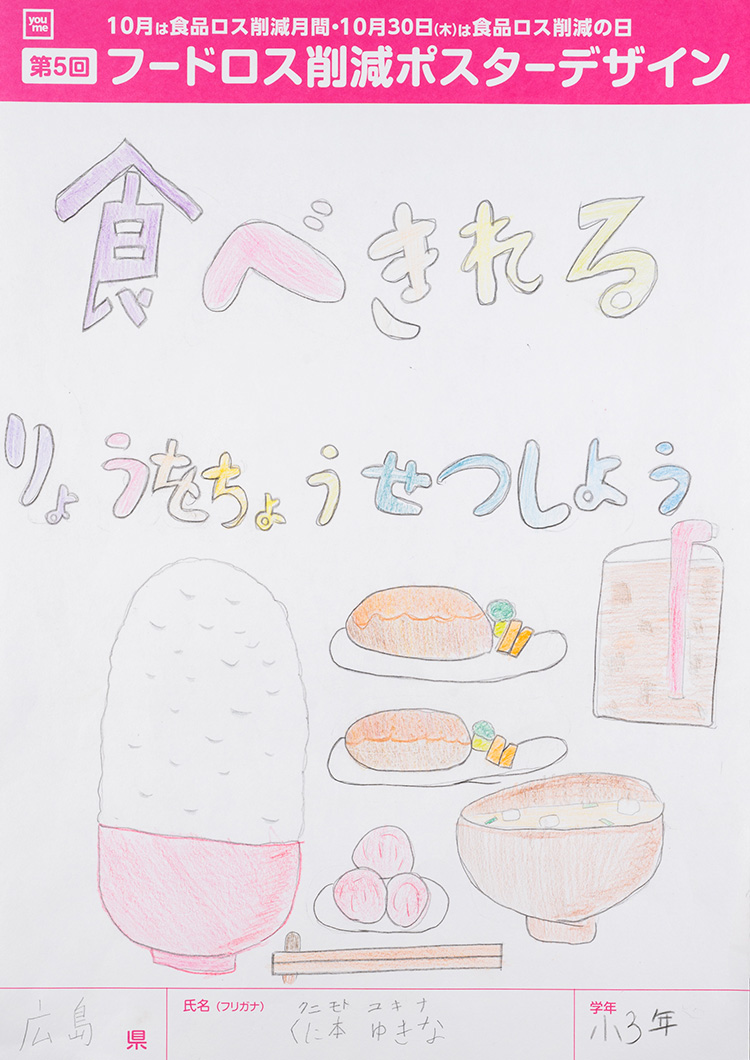 you
me
10月は食品ロス削減月間・10月30日(木)は食品ロス削減の日
第5回 フードロス削減ポスターデザイン
食べきれる
りょうをちょうせつしよう
広島県 氏名(フリガナ) クニモト ユキナ 学年
くに本 ゆきな 小3年